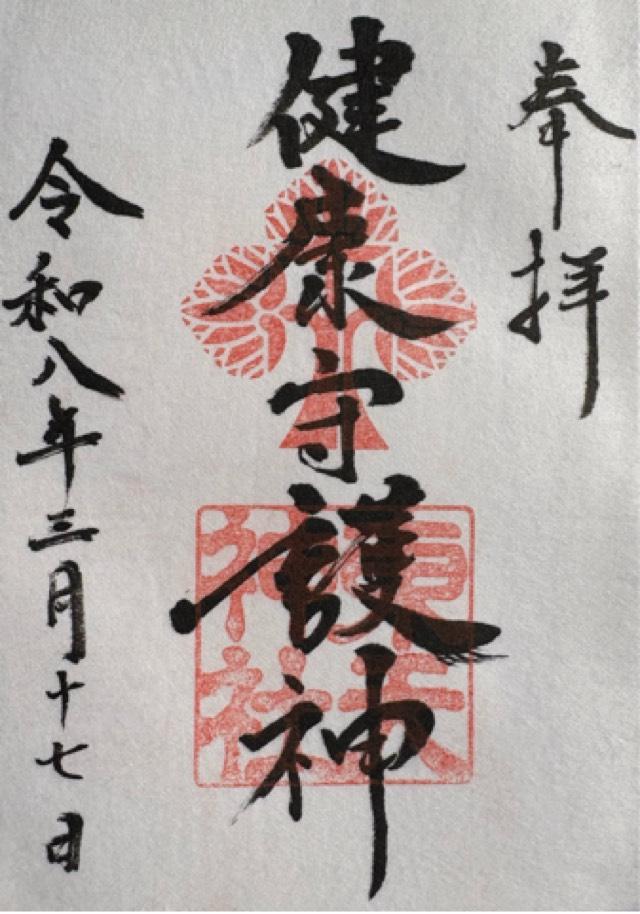 奉拝
健康守護神
令和八年三月十七日